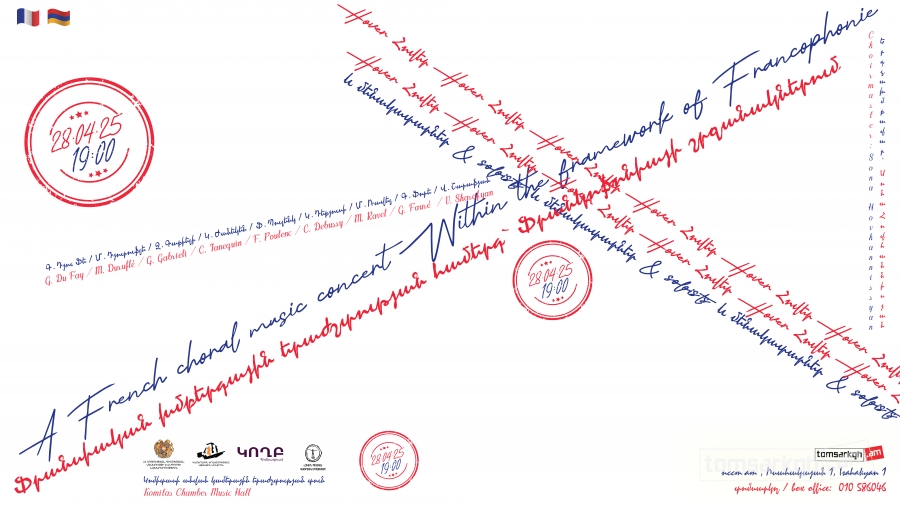 Hover Հովեր Hover Հովեր Hover Հովեր Hover Հովեր Hover Հովեր Hover Հովեր
Hover Հովեր Hover Հովեր Hover Հովեր Hover Հովեր Hover Հովեր Hover
և մենակատարներ & soloists և մենակատարներ & soloists և մենակատարներ & soloists
28.04.25
19:00
Գ. Դյու Ֆե / Մ. Դյուրուֆլե / Ջ. Գաբրիելի / Կ. Ժանեկեն / Ֆ. Պուլենկ / Կ. Դեբյուսի / Մ. Ռավել / Գ. Ֆորե / Վ. Շարաֆյան
G. Du Fay / M. Duruflé / G. Gabrieli / C. Janequin / F. Poulenc / C. Debussy / M. Ravel / G. Fauré / V. Sharafyan
A French choral music concert Within the framework of Francophonie
Ֆրանսիական խմբերգային երաժշտության համերգ՝ Ֆրանկոֆոնիայի շրջանակներում
28.04.25
19:00
Choirmaster: Sona Hovhannisyan
Խմբավար՝ Սոնա Հովհաննիսյան
ԿՈՂԲ
28.04.25
19:00
Կոմիտասի անվան կամերային երաժշտության տուն
Komitas Chamber Music Hall
tomsarkgh.am
nccm.am , Իսահակյան 1, Isahakyan 1
տոմսարկղ / box office: 010 586046